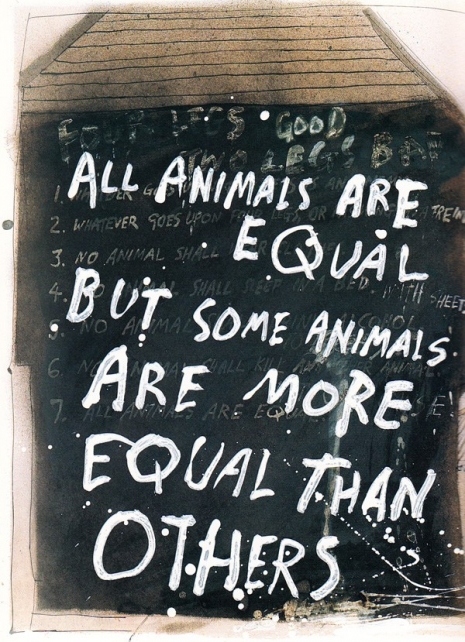 FOUR LEGS GOOD
TWO LEGS BAD
ALL ANIMALS ARE
EQUAL
BUT SOME ANIMALS
ARE MORE
EQUAL THAN
OTHERS
1.
2. WHATEVER GOES UPON FOUR LEGS, OR
3. NO ANIMAL SHALL
4. NO ANIMAL SHALL SLEEP IN A BED WITH SHEETS
5. NO ANIMAL ALCOHOL
6. NO ANIMAL SHALL KILL ANY ANIMAL
7. ALL ANIMALS ARE EQUAL